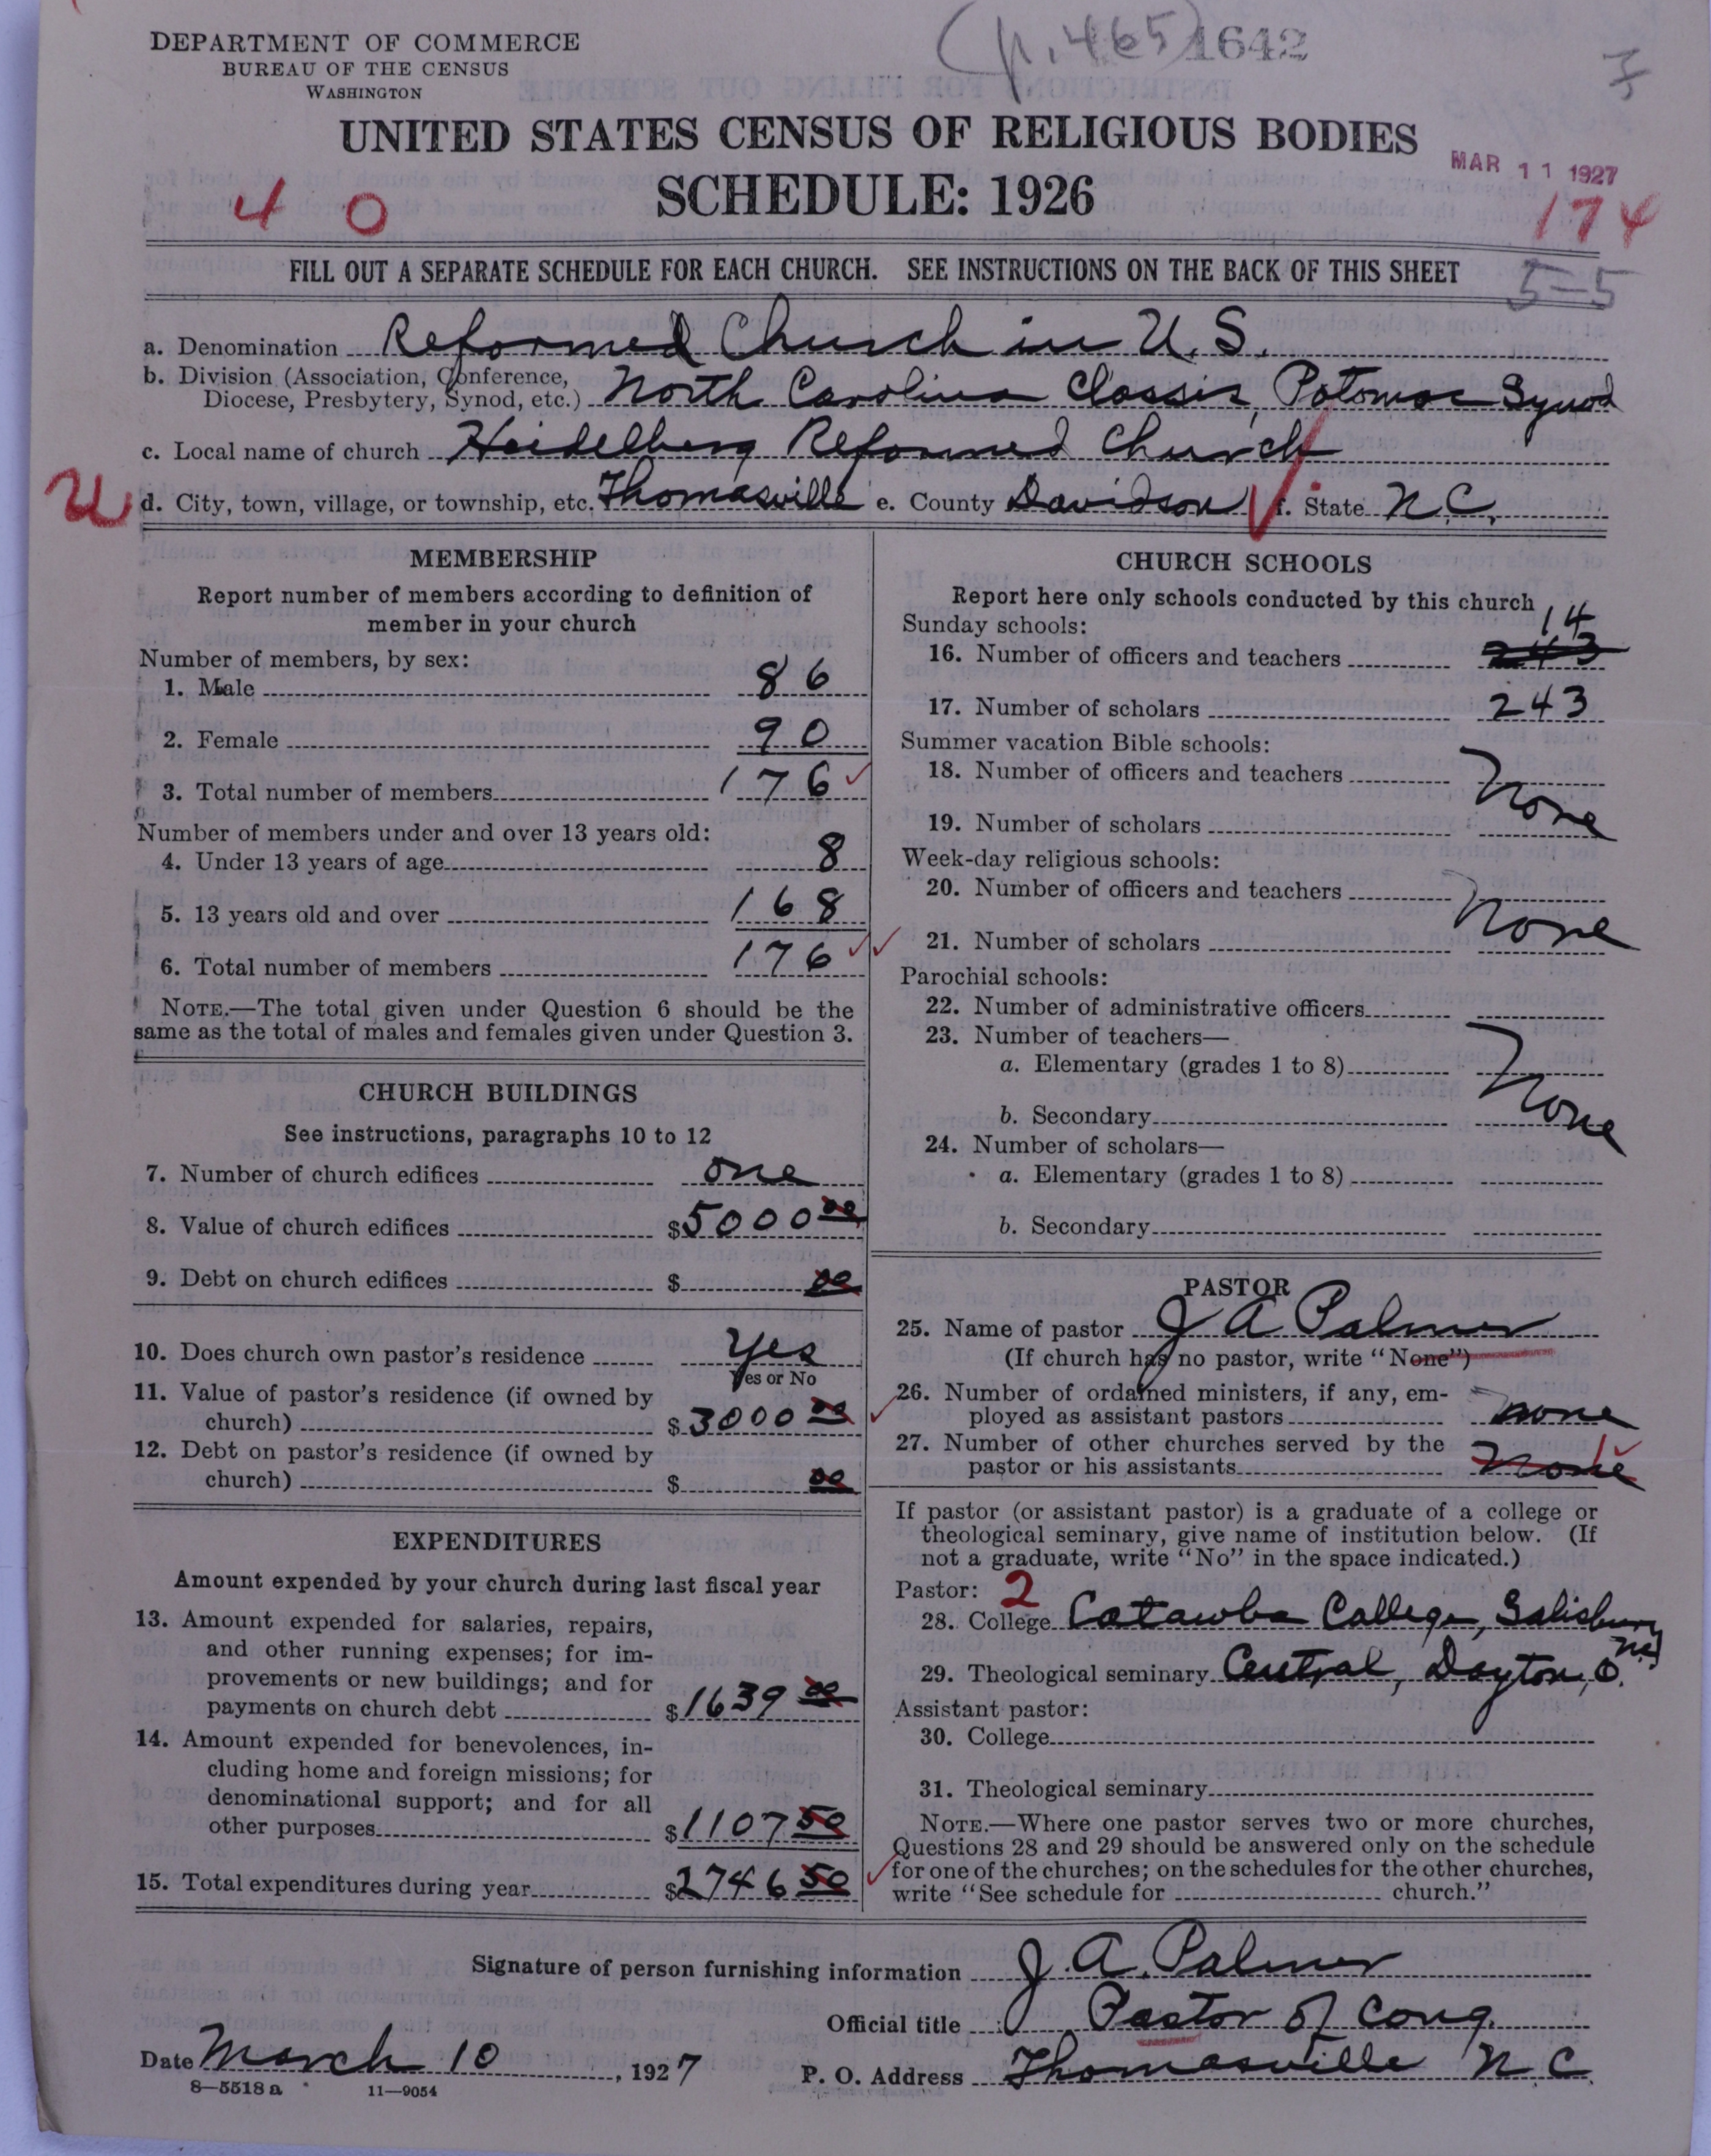 DEPARTMENT OF COMMERCE
BUREAU OF THE CENSUS
WASHINGTON
(p.465) 1642
UNITED STATES CENSUS OF RELIGIOUS BODIES
MAR 11 1927
4 0
SCHEDULE: 1926
174
FILL OUT A SEPARATE SCHEDULE FOR EACH CHURCH. SEE INSTRUCTIONS ON THE BACK OF THIS SHEET
5-5
a. Denomination Reformed Church in U.S.
b. Division (Association, Conference,
Diocese, Presbytery, Synod, etc.) North Carolina Classis, Potomac Synod
c. Local name of church Heidelberg Reformed Church
U d. City, town, village, or township, etc. Thomasville e. County Davidson f. State N.C.
MEMBERSHIP
Report number of members according to definition of
member in your church
Number of members, by sex:
1. Male 86
2. Female 90
3. Total number of members 176
Number of members under and over 13 years old:
4. Under 13 years of age 8
5. 13 years old and over 168
6. Total number of members 176
NOTE.—The total given under Question 6 should be the
same as the total of males and females given under Question 3.
CHURCH BUILDINGS
See instructions, paragraphs 10 to 12
7. Number of church edifices one
8. Value of church edifices $5000 00
9. Debt on church edifices $ 00
10. Does church own pastor's residence Yes
Yes or No
11. Value of pastor's residence (if owned by
church) $3000 00
12. Debt on pastor's residence (if owned by
church) $ 00
EXPENDITURES
Amount expended by your church during last fiscal year
13. Amount expended for salaries, repairs,
and other running expenses; for im-
provements or new buildings; and for
payments on church debt $1639 00
14. Amount expended for benevolences, in-
cluding home and foreign missions; for
denominational support; and for all
other purposes $1107 50
15. Total expenditures during year $2746 50
CHURCH SCHOOLS
Report here only schools conducted by this church
Sunday schools: 14
16. Number of officers and teachers 243
17. Number of scholars 243
Summer vacation Bible schools:
18. Number of officers and teachers
None
19. Number of scholars
Week-day religious schools:
20. Number of officers and teachers
None
21. Number of scholars
Parochial schools:
22. Number of administrative officers
23. Number of teachers—
a. Elementary (grades 1 to 8)
None
b. Secondary
24. Number of scholars—
a. Elementary (grades 1 to 8)
b. Secondary
PASTOR
25. Name of pastor J A Palmer
(If church has no pastor, write "None")
26. Number of ordained ministers, if any, em-
ployed as assistant pastors none
27. Number of other churches served by the 1
pastor or his assistants None
If pastor (or assistant pastor) is a graduate of a college or
theological seminary, give name of institution below. (If
not a graduate, write "No" in the space indicated.)
Pastor: 2
28. College Catawba College, Salisbury
NC
29. Theological seminary Central, Dayton, O.
Assistant pastor:
30. College
31. Theological seminary
NOTE.—Where one pastor serves two or more churches,
Questions 28 and 29 should be answered only on the schedule
for one of the churches; on the schedules for the other churches,
write "See schedule for church."
Signature of person furnishing information J. A. Palmer
Official title Pastor of Cong.
Date March 10, 1927 P. O. Address Thomasville N.C.
8—5518a 11—9054